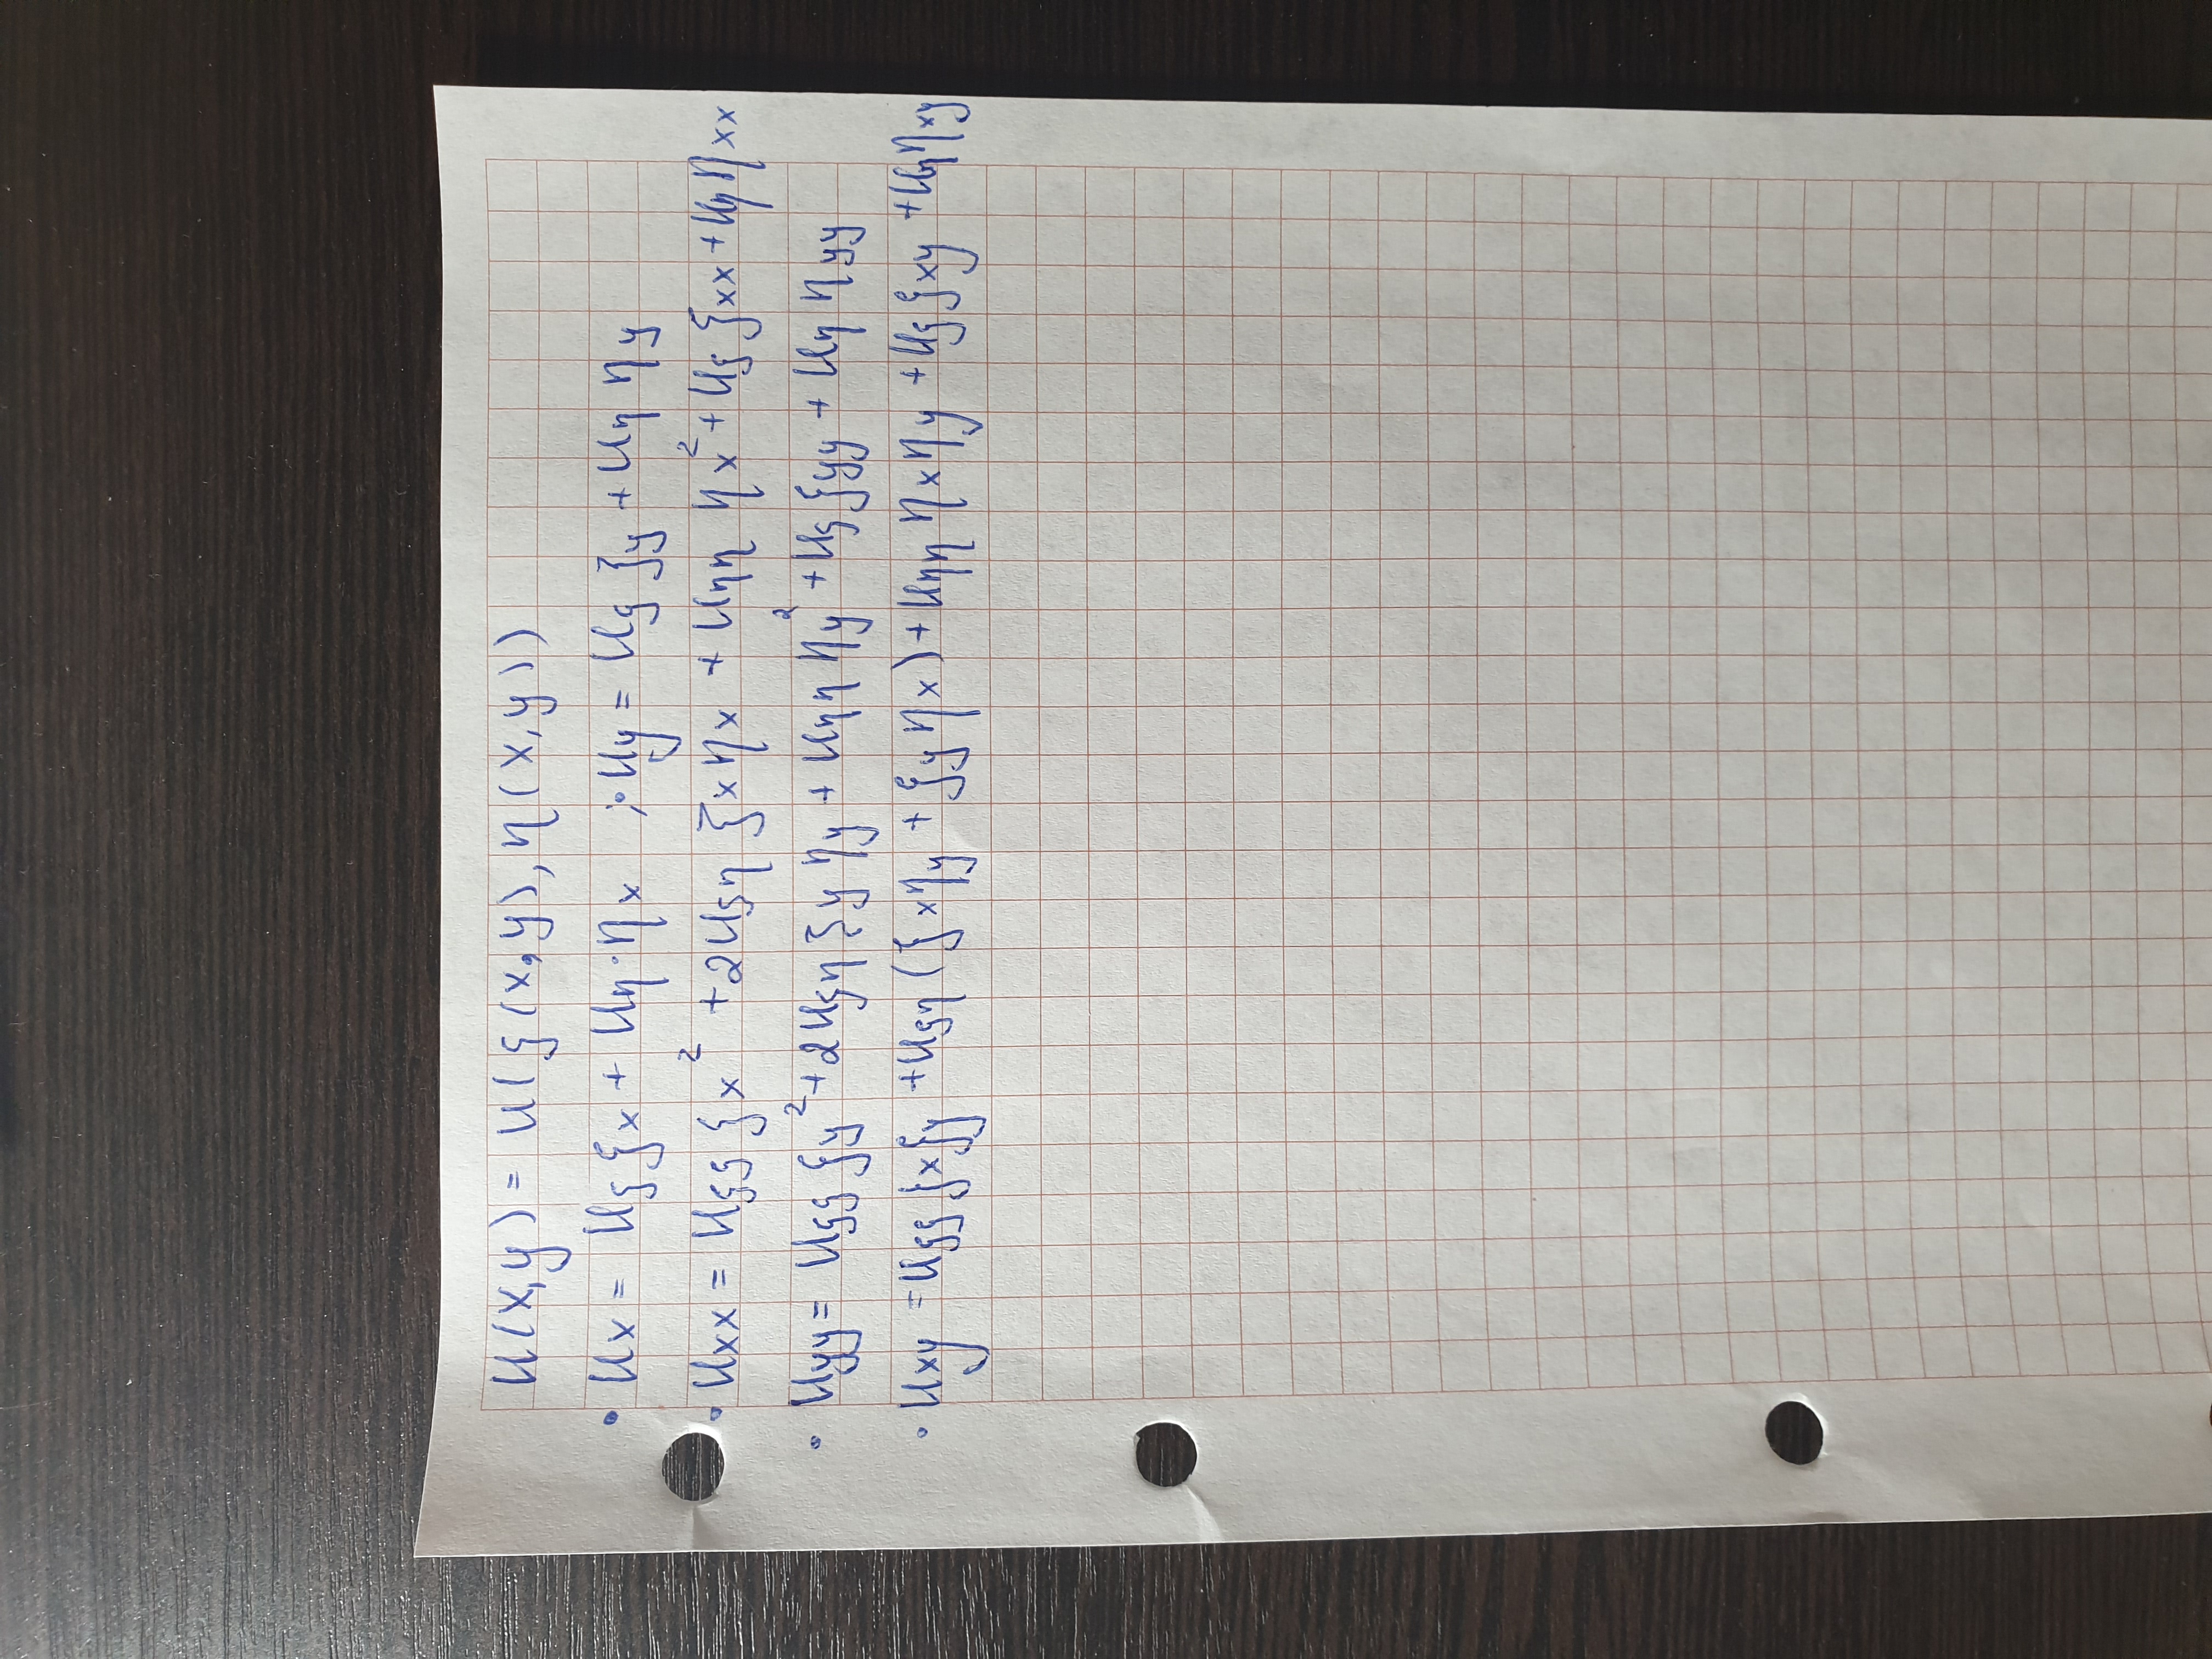 u(x,y) = u(ξ(x,y), η(x,y))
• uₓ = u_ξ ξₓ + u_η · ηₓ ; • u_y = u_ξ ξ_y + u_η η_y
• uₓₓ = u_ξξ ξₓ² + 2u_ξη ξₓ ηₓ + u_ηη ηₓ² + u_ξ ξₓₓ + u_η ηₓₓ
• u_yy = u_ξξ ξ_y² + 2u_ξη ξ_y η_y + u_ηη η_y² + u_ξ ξ_yy + u_η η_yy
• u_xy = u_ξξ ξₓ ξ_y + u_ξη (ξₓ η_y + ξ_y ηₓ) + u_ηη ηₓ η_y + u_ξ ξ_xy + u_η η_xy